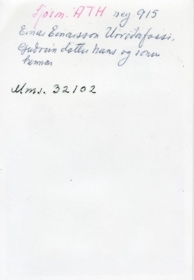 Ljósm. ATH reg 915
Einar Einarsson Urriðafossi.
Guðrún dóttir hans og sonur
hennar
Mms. 32102